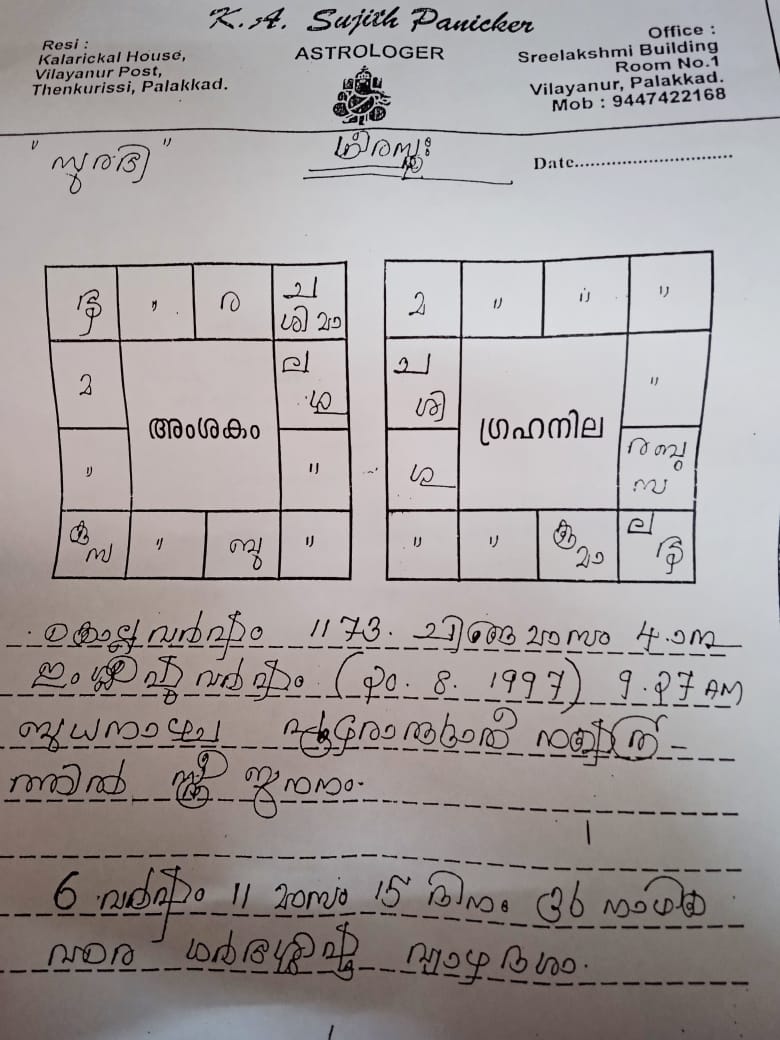 K. A. Sujith Panicker
ASTROLOGER
Resi :
Kalarickal House,
Vilayanur Post,
Thenkurissi, Palakkad.
Office :
Sreelakshmi Building
Room No.1
Vilayanur, Palakkad.
Mob : 9447422168
" സുരഭി "
Date..............................
" ര ച
ശി മാ
മ ല
അംശകം
"
" "
സ " ബു "
മ " " "
ച
ശി "
ഗ്രഹനില
ര ബു
സ
" " മാ ല
കൊല്ലവർഷം 1173. ചിങ്ങമാസം 4.ാനു
ഇംഗ്ലീഷു വർഷം (20. 8. 1997) 9.27 AM
ബുധനാഴ്ച പൂരുരുട്ടാതി നക്ഷത്ര-
ത്തിൽ സ്ത്രീ ജനനം.
6 വർഷം 11 മാസം 15 ദിനം 36 നാഴിക
വരെ ഗർഭശിഷ്ട വ്യാഴദശാ.